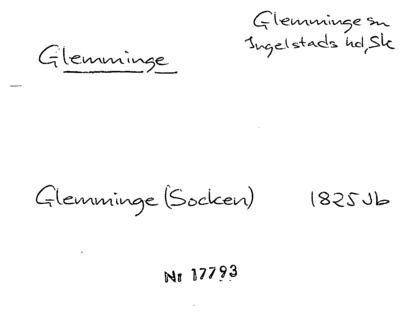 Glemminge sn
Ingelstads hd, Sk
Glemminge
Glemminge (Socken) 1825 Jb
Nr 17793